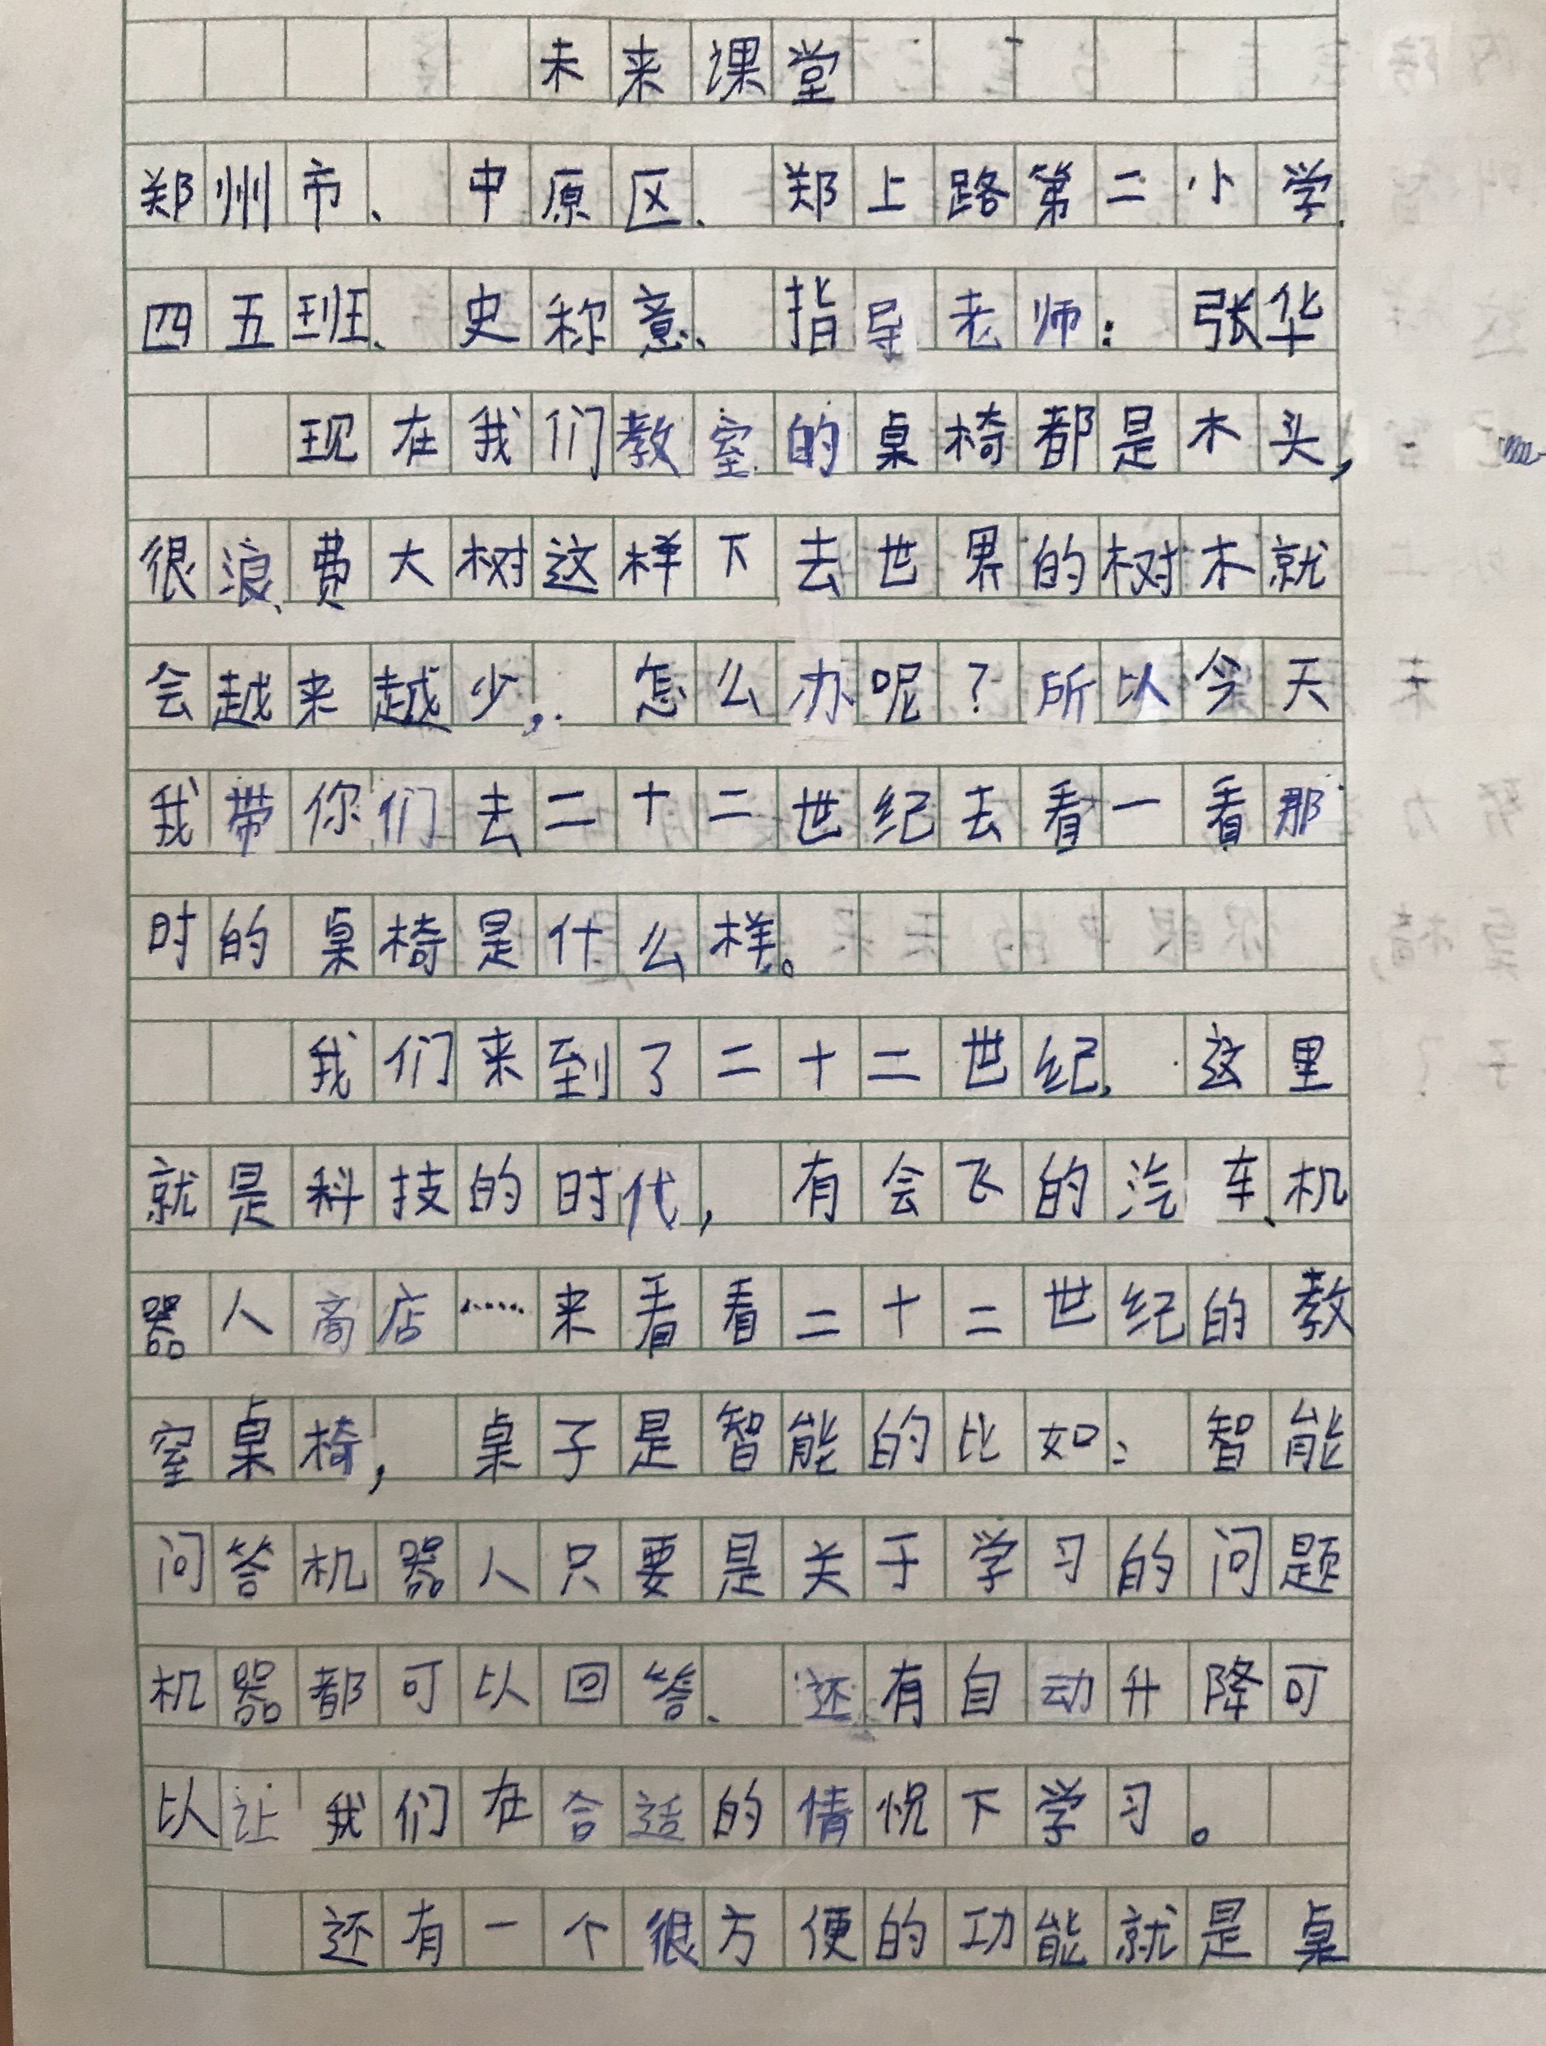 未来课堂
郑州市、中原区、郑上路第二小学、
四五班、史称意、指导老师：张华
现在我们教室的桌椅都是木头，
很浪费大树这样下去世界的树木就
会越来越少，怎么办呢？所以今天
我带你们去二十二世纪去看一看那
时的桌椅是什么样。
我们来到了二十二世纪，这里
就是科技的时代，有会飞的汽车、机
器人商店……来看看二十二世纪的教
室桌椅，桌子是智能的比如：智能
问答机器人只要是关于学习的问题
机器都可以回答、还有自动升降可
以让我们在合适的情况下学习。
还有一个很方便的功能就是桌